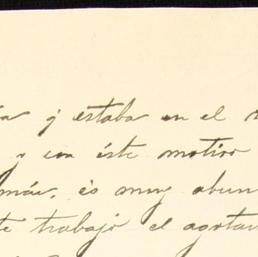 y estaba en el
y con éste motivo
más, és muy abun
te trabajo el agotan